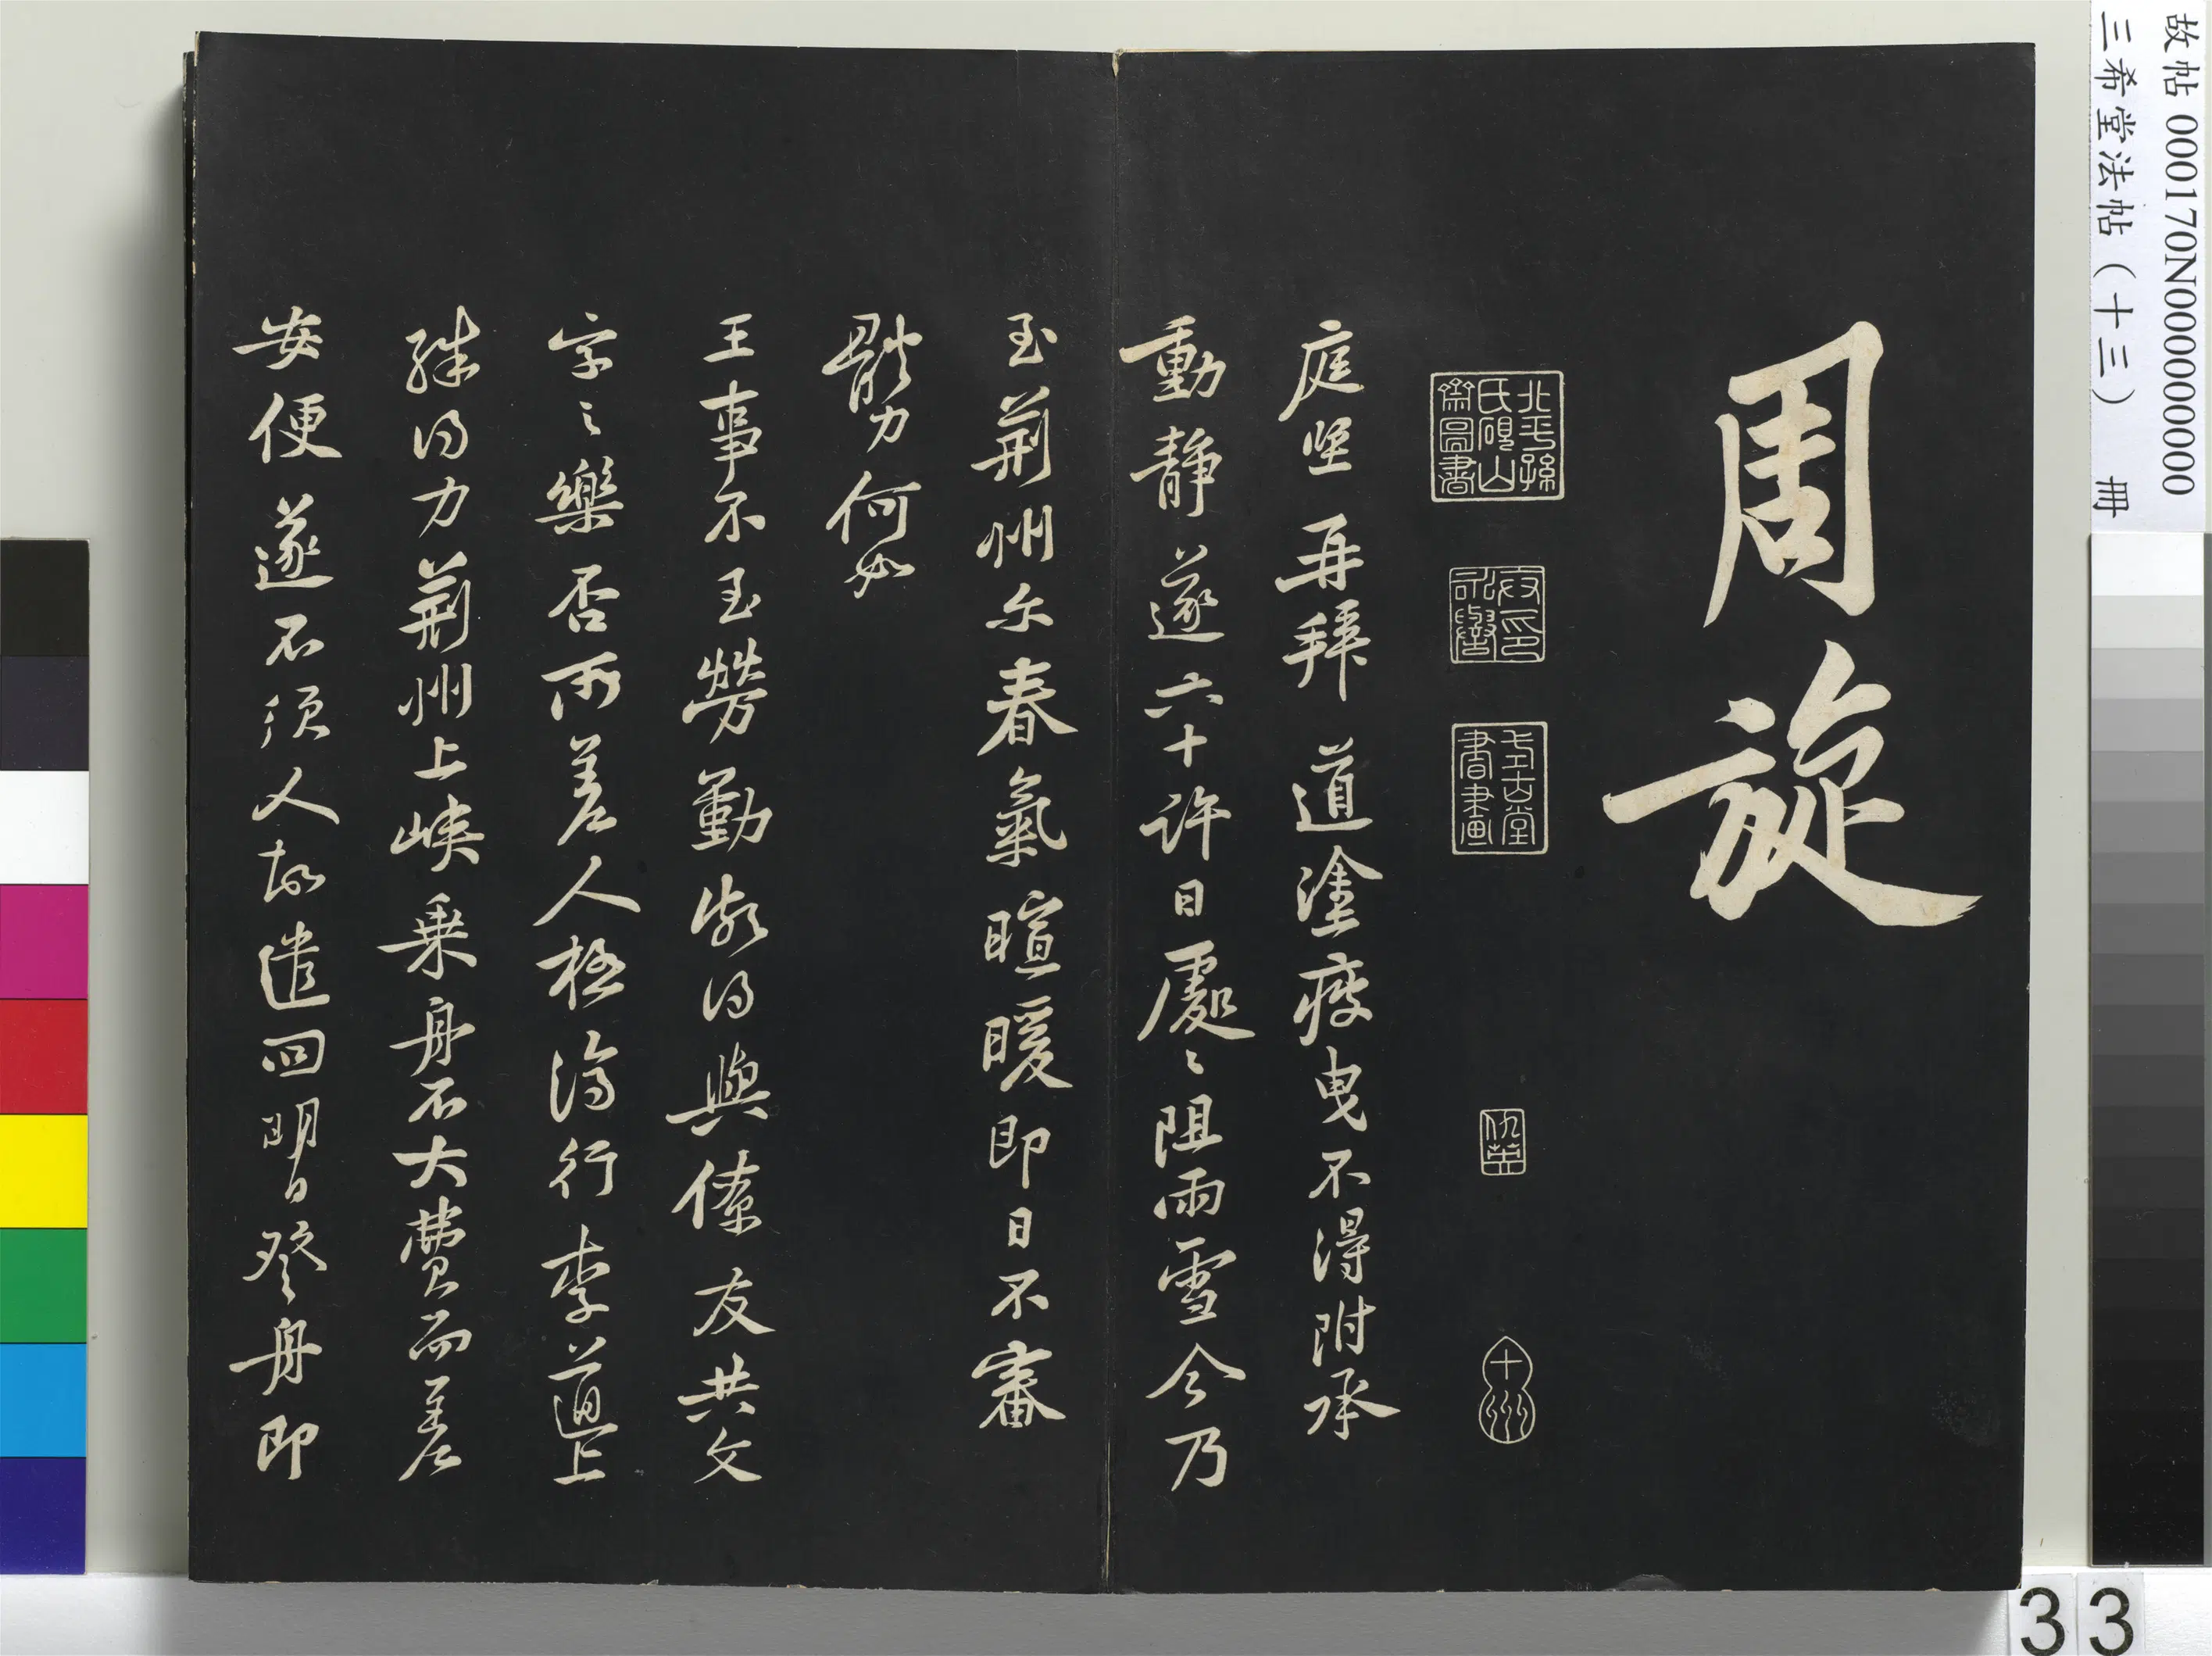 故帖 000170N000000000
三希堂法帖（十三） 冊
周旋
北平孫氏硯山齋圖書
式古堂書畫
仇英
十州
庭堅再拜道塗疲曳不得附承
動靜遂六十許日處〻阻雨雪今乃
至荊州尓春氣暄暖即日不審
體力何如
王事不至勞勤能得與僚友共文
字之樂否所差人極濟行李上
殊得力荊州上峽乗舟不大費而差
安便遂不須人故遣回明日發舟即
33